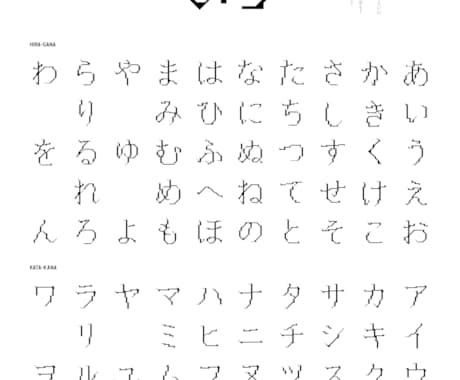 HIRA-GANA
わ ら や ま は な た さ か あ
り み ひ に ち し き い
を る ゆ む ふ ぬ つ す く う
れ め へ ね て せ け え
ん ろ よ も ほ の と そ こ お
KATA-KANA
ワ ラ ヤ マ ハ ナ タ サ カ ア
リ ミ ヒ ニ チ シ キ イ
ヲ ル ユ ム フ ヌ ツ ス ク ウ